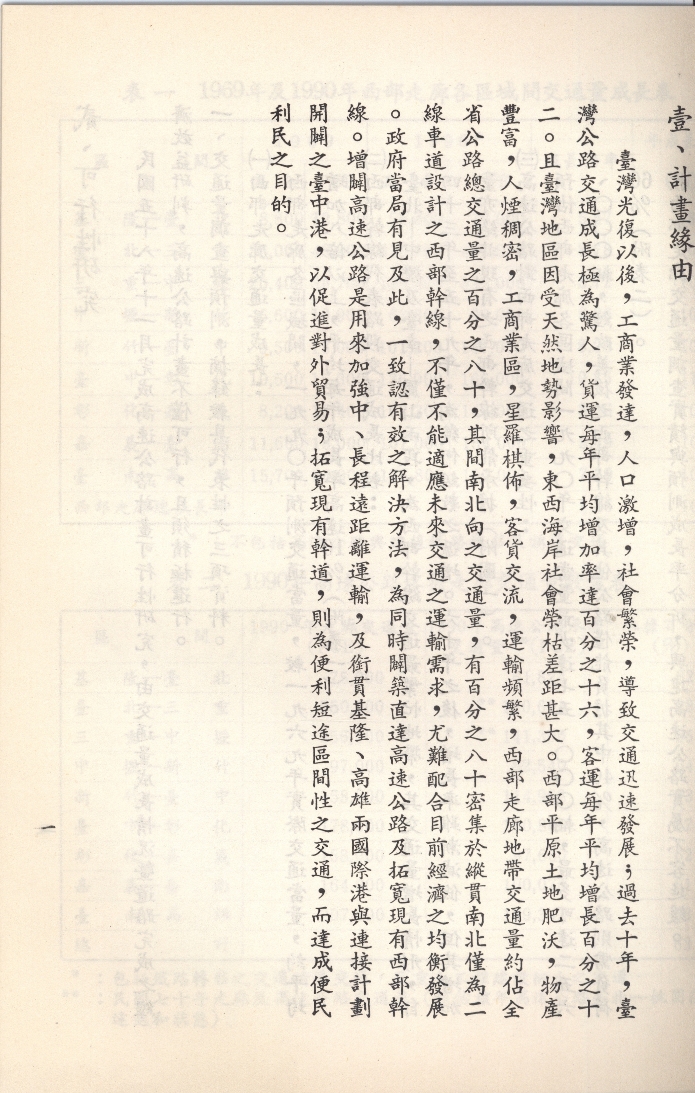 壹、計畫緣由
臺灣光復以後，工商業發達，人口激增，社會繁榮，導致交通迅速發展；過去十年，臺
灣公路交通成長極為驚人，貨運每年平均增加率達百分之十六，客運每年平均增長百分之十
二。且臺灣地區因受天然地勢影響，東西海岸社會榮枯差距甚大。西部平原土地肥沃，物產
豐富，人煙稠密，工商業區，星羅棋佈，客貨交流，運輸頻繁，西部走廊地帶交通量約佔全
省公路總交通量之百分之八十，其間南北向之交通量，有百分之八十密集於縱貫南北僅為二
線車道設計之西部幹線，不僅不能適應未來交通之運輸需求，尤難配合目前經濟之均衡發展
。政府當局有見及此，一致認有效之解決方法，為同時闢築直達高速公路及拓寬現有西部幹
線。增闢高速公路是用來加強中、長程遠距離運輸，及銜貫基隆、高雄兩國際港與連接計劃
開闢之臺中港，以促進對外貿易；拓寬現有幹道，則為便利短途區間性之交通，而達成便民
利民之目的。
一